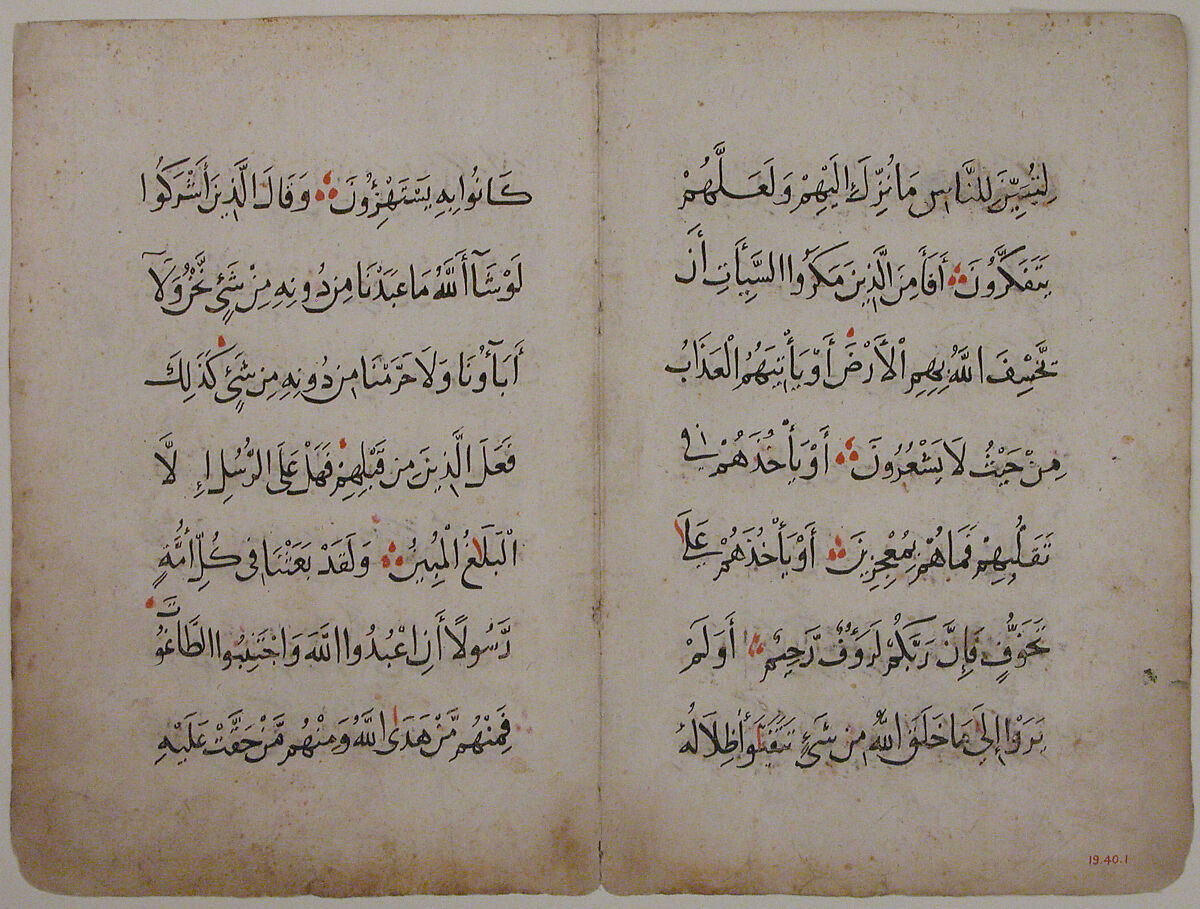 لِتُبَيِّنَ لِلنَّاسِ مَا نُزِّلَ إِلَيْهِمْ وَلَعَلَّهُمْ
يَتَفَكَّرُونَ أَفَأَمِنَ الَّذِينَ مَكَرُوا السَّيِّأَتِ أَن
يَّخْسِفَ اللَّهُ بِهِمِ الْأَرْضَ أَوْ يَأْتِيَهُمُ الْعَذَابُ
مِنْ حَيْثُ لَا يَشْعُرُونَ أَوْ يَأْخُذَهُمْ فِي
تَقَلُّبِهِمْ فَمَا هُمْ بِمُعْجِزِينَ أَوْ يَأْخُذَهُمْ عَلَى
تَخَوُّفٍ فَإِنَّ رَبَّكُمْ لَرَؤُفٌ رَّحِيمٌ أَوَلَمْ
يَرَوْا إِلَى مَا خَلَقَ اللَّهُ مِن شَيْءٍ يَتَفَيَّؤُا ظِلَالُهُ
كَانُوا بِهِ يَسْتَهْزِؤُنَ وَقَالَ الَّذِينَ أَشْرَكُوا
لَوْ شَآءَ اللَّهُ مَا عَبَدْنَا مِن دُونِهِ مِنْ شَيْءٍ نَّحْنُ وَلَآ
أَبَآؤُنَا وَلَا حَرَّمْنَا مِن دُونِهِ مِن شَيْءٍ كَذَلِكَ
فَعَلَ الَّذِينَ مِن قَبْلِهِمْ فَهَلْ عَلَى الرُّسُلِ إِلَّا
الْبَلَاغُ الْمُبِينُ وَلَقَدْ بَعَثْنَا فِي كُلِّ أُمَّةٍ
رَّسُولًا أَنِ اعْبُدُوا اللَّهَ وَاجْتَنِبُوا الطَّاغُوتَ
فَمِنْهُم مَّنْ هَدَى اللَّهُ وَمِنْهُم مَّنْ حَقَّتْ عَلَيْهِ
19.40.1